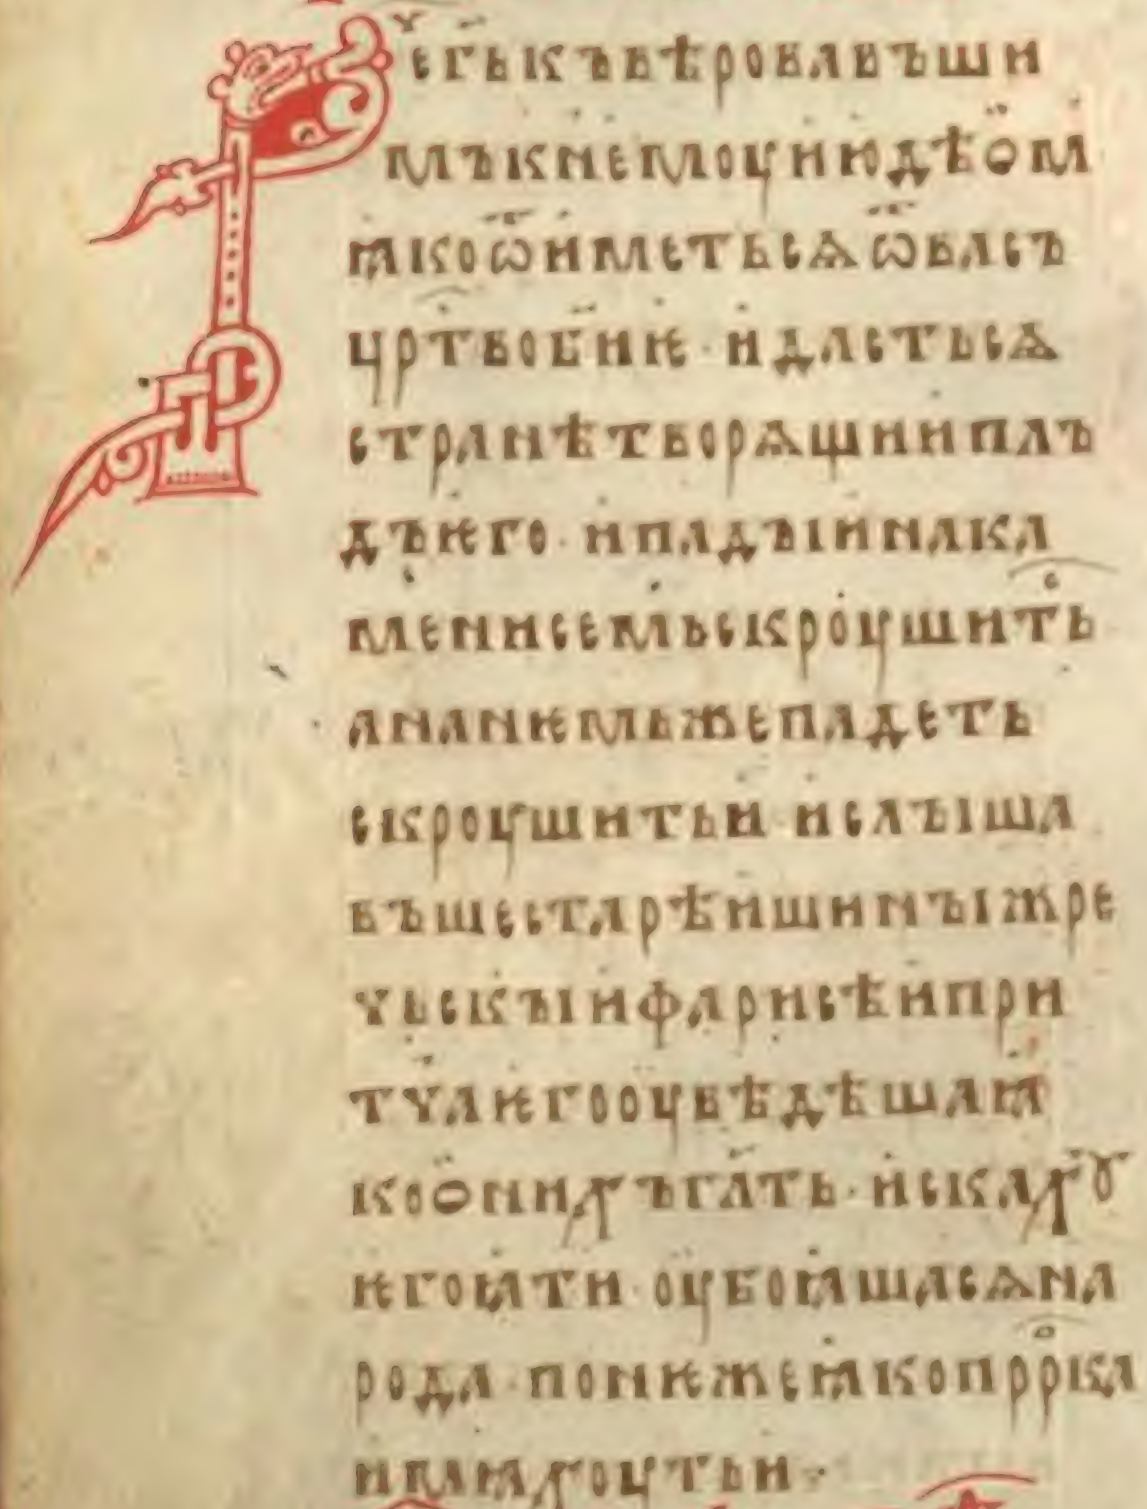 Рече гь къ вѣровавъши
мъ к немоу июдѣом
ꙗко ѿиметьсѧ ѿ васъ
црⷭтво бжие · и дастьсѧ
странѣ творѧщии плъ
дъ ѥго · и падыи на ка
мени семь скроушитьс
а на нѥмьже падеть
скроушить и · и слыша
въше старѣишинꙑ жре
чьскꙑ и фарисѣи при
тчѧ ѥго оувѣдѣша ꙗ
ко о нихъ глть · и искахꙋ
ѥго ꙗти · оубоꙗшасѧ на
рода · понѥже ꙗко прⷪрка
имѧхоуть и ·